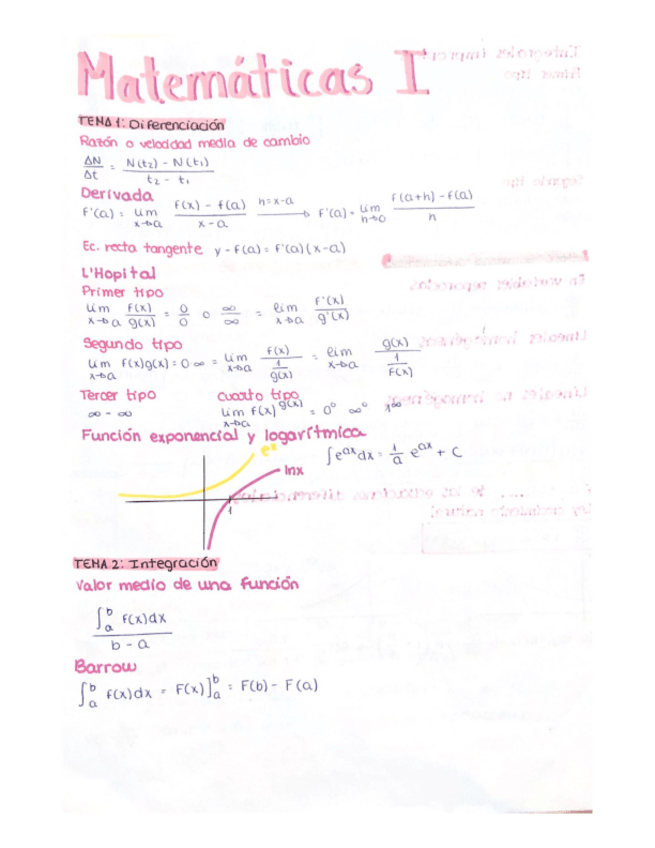 Matemáticas I
TEMA 1: Diferenciación
Razón o velocidad media de cambio
ΔN/Δt = (N(t₂) - N(t₁))/(t₂ - t₁)
Derivada
f'(a) = lim x→a (f(x) - f(a))/(x - a) h=x-a → f'(a) = lim h→0 (f(a+h) - f(a))/h
Ec. recta tangente y - f(a) = f'(a)(x-a)
L'Hopital
Primer tipo
lim x→a f(x)/g(x) = 0/0 o ∞/∞ = lim x→a f'(x)/g'(x)
Segundo tipo
lim x→a f(x)g(x) = 0∞ = lim x→a f(x)/(1/g(x)) = lim x→a g(x)/(1/f(x))
Tercer tipo cuarto tipo
∞ - ∞ lim x→a f(x)^g(x) = 0⁰ ∞⁰ 1^∞
Función exponencial y logarítmica
eˣ
∫e^ax dx = 1/a e^ax + C
lnx
1
TEMA 2: Integración
Valor medio de una función
∫ₐᵇ f(x)dx
b - a
Barrow
∫ₐᵇ f(x)dx = F(x)]ₐᵇ = F(b) - F(a)